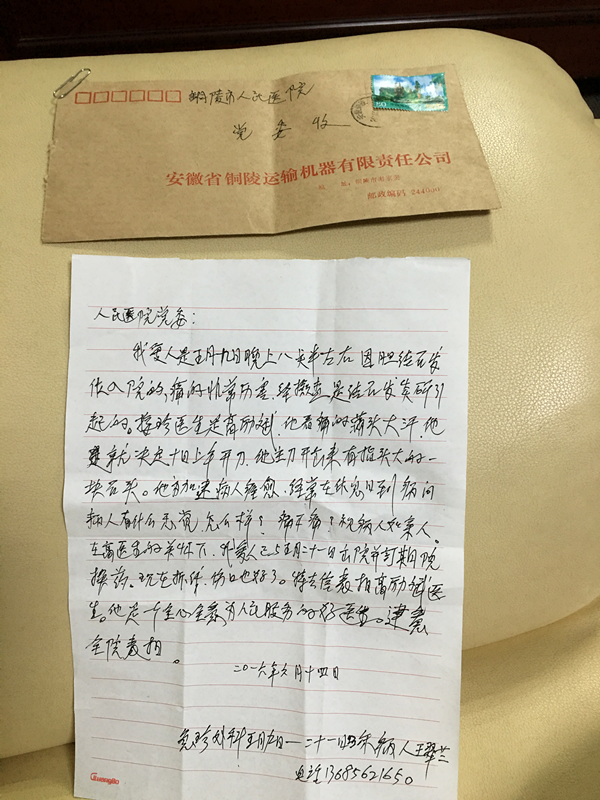 铜陵市人民医院
党委 收
50
安徽省铜陵运输机器有限责任公司
邮政编码 244000
人民医院党委:
我爱人是五月九日晚上八点半左右因胆结石发
作入院的,痛的非常厉害,经检查是结石发炎所引
起的。接诊医生是高励斌,他看痛的满头大汗,他
就决定十日上午开刀,他主刀开出来有指头大的一
块石头。他为加速病人痊愈,经常在休息日到病间
问病人有什么感觉,怎么样?痛不痛?视病人如亲人。
在高医生的关怀下,我爱人已5月二十一日出院并定期到院
换药。现在拆线,伤口也好了。特去信表扬高励斌医
生。他是一个全心全意为人民服务的好医生。建议
全院表扬。
二〇一六年六月十四日
急诊外科五月九日—二十一日 病人王翠兰
电话13685621650
Guangbo